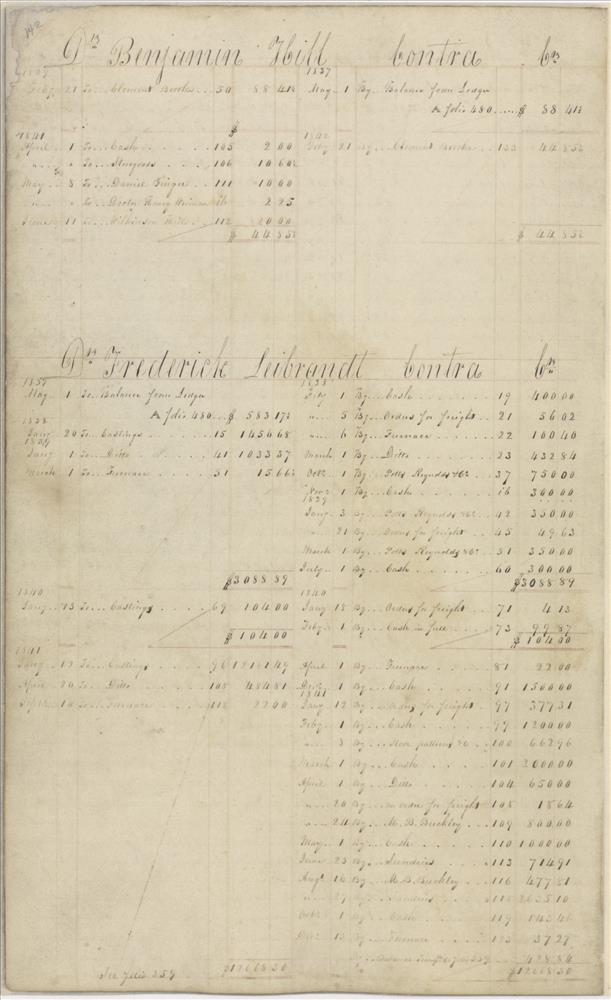 142
Dr Benjamin Hill Contra Cr
1837
Feby 21 To Clement Brooks 50 88 41½
May 1 By Balance from Ledger
A folio 480 $ 88 41½
1841
April 1 To Cash 105 2 00
" " To 106 10 60½
May 8 To Daniel 111 10 00
" " To Henry 2 25
11 To Wilkinson Hill 112 20 00
$ 44 85½
1842
Feby 21 By Clement Brooks 133 44 85½
$ 44 85½
Dr Frederick Leibrandt Contra Cr
1837
May 1 To Balance from Ledger
A folio 480 $ 583 17½
1838
Jany 20 To Castings 15 1456 68
1839
Jany 1 To Ditto 41 1033 37
March 1 To Furnace 51 15 66½
$3088 89
1838
Feby 1 By Cash 19 400 00
" 5 By Orders for freight 21 56 02
" 6 By Furnace 22 100 40
March 1 By Ditto 23 432 84
Octr 1 By Potts Reynolds &Co 37 750 00
Novr 1 By Cash 16 300 00
1839
Jany 3 By Potts Reynolds &Co 42 350 00
" 21 By Orders for freight 45 49 63
March 1 By Potts Reynolds &Co 51 350 00
July 1 By Cash 60 300 00
$3088 89
1840
Jany 13 To Castings 69 104 00
$ 104 00
1840
Jany 18 By Orders for freight 71 4 13
Feby 1 By Cash in full 73 99 87
$ 104 00
1841
Jany 12 To Castings 96 12161 49
April 20 To Ditto 108 484 81
To Furnace 22 00
$12668 30
See folio 259
April 1 By Furnace 81 22 00
Decr 1 By Cash 91 1500 00
1841
Jany 12 By Orders for freight 97 377 31
Feby 1 By Cash 99 1200 00
" 3 By Stove patterns &c 100 662 96
March 1 By Cash 101 2000 00
April 1 By Ditto 104 650 00
" 20 By an order for freight 108 18 64
" 24 By M. B. Buckley 109 800 00
May 1 By Cash 110 1000 00
June 23 By Sundries 113 714 91
Augt 16 By M. B. Buckley 116 477 81
" 27 By Sundries 118 2635 10
Octr 1 By Cash 119
Decr 13 By Furnace 123 37 27
Balance 259 428 84
$12668 30